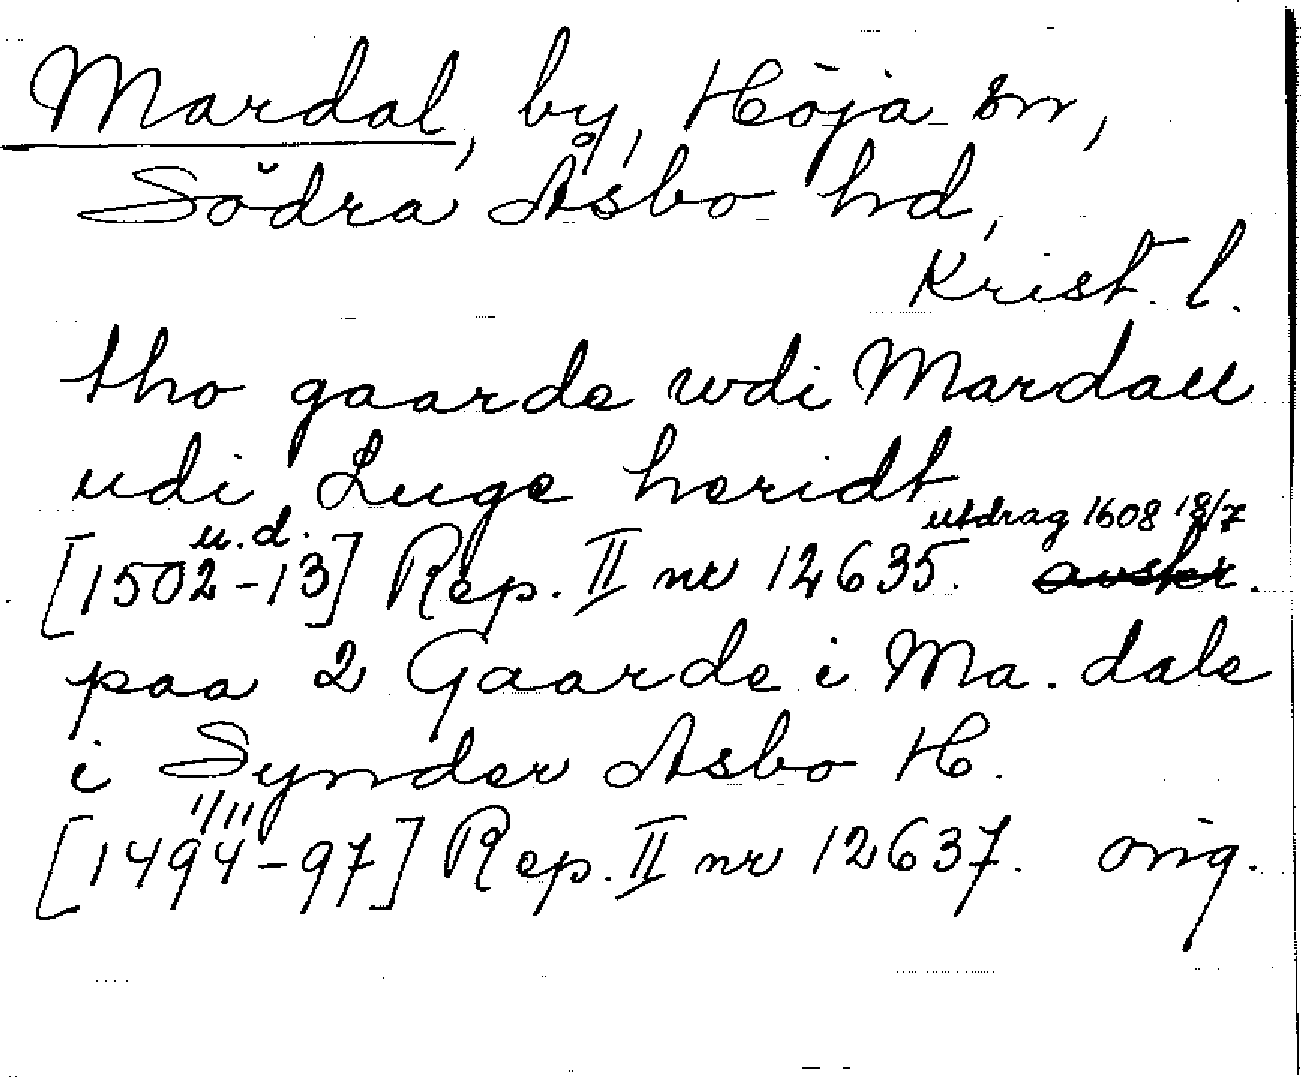 Mardal, by, Höja sn,
Södra Åsbo hd,
Krist. l.
tho gaarde wdi Mardall
udi Luge heridt
u.d. utdrag 1608 18/7
[1502-13] Rep. II nr 12635. avskr.
paa 2 Gaarde i Ma. dale
i Synder Asbo H.
11/11
[1494-97] Rep. II nr 12637. orig.